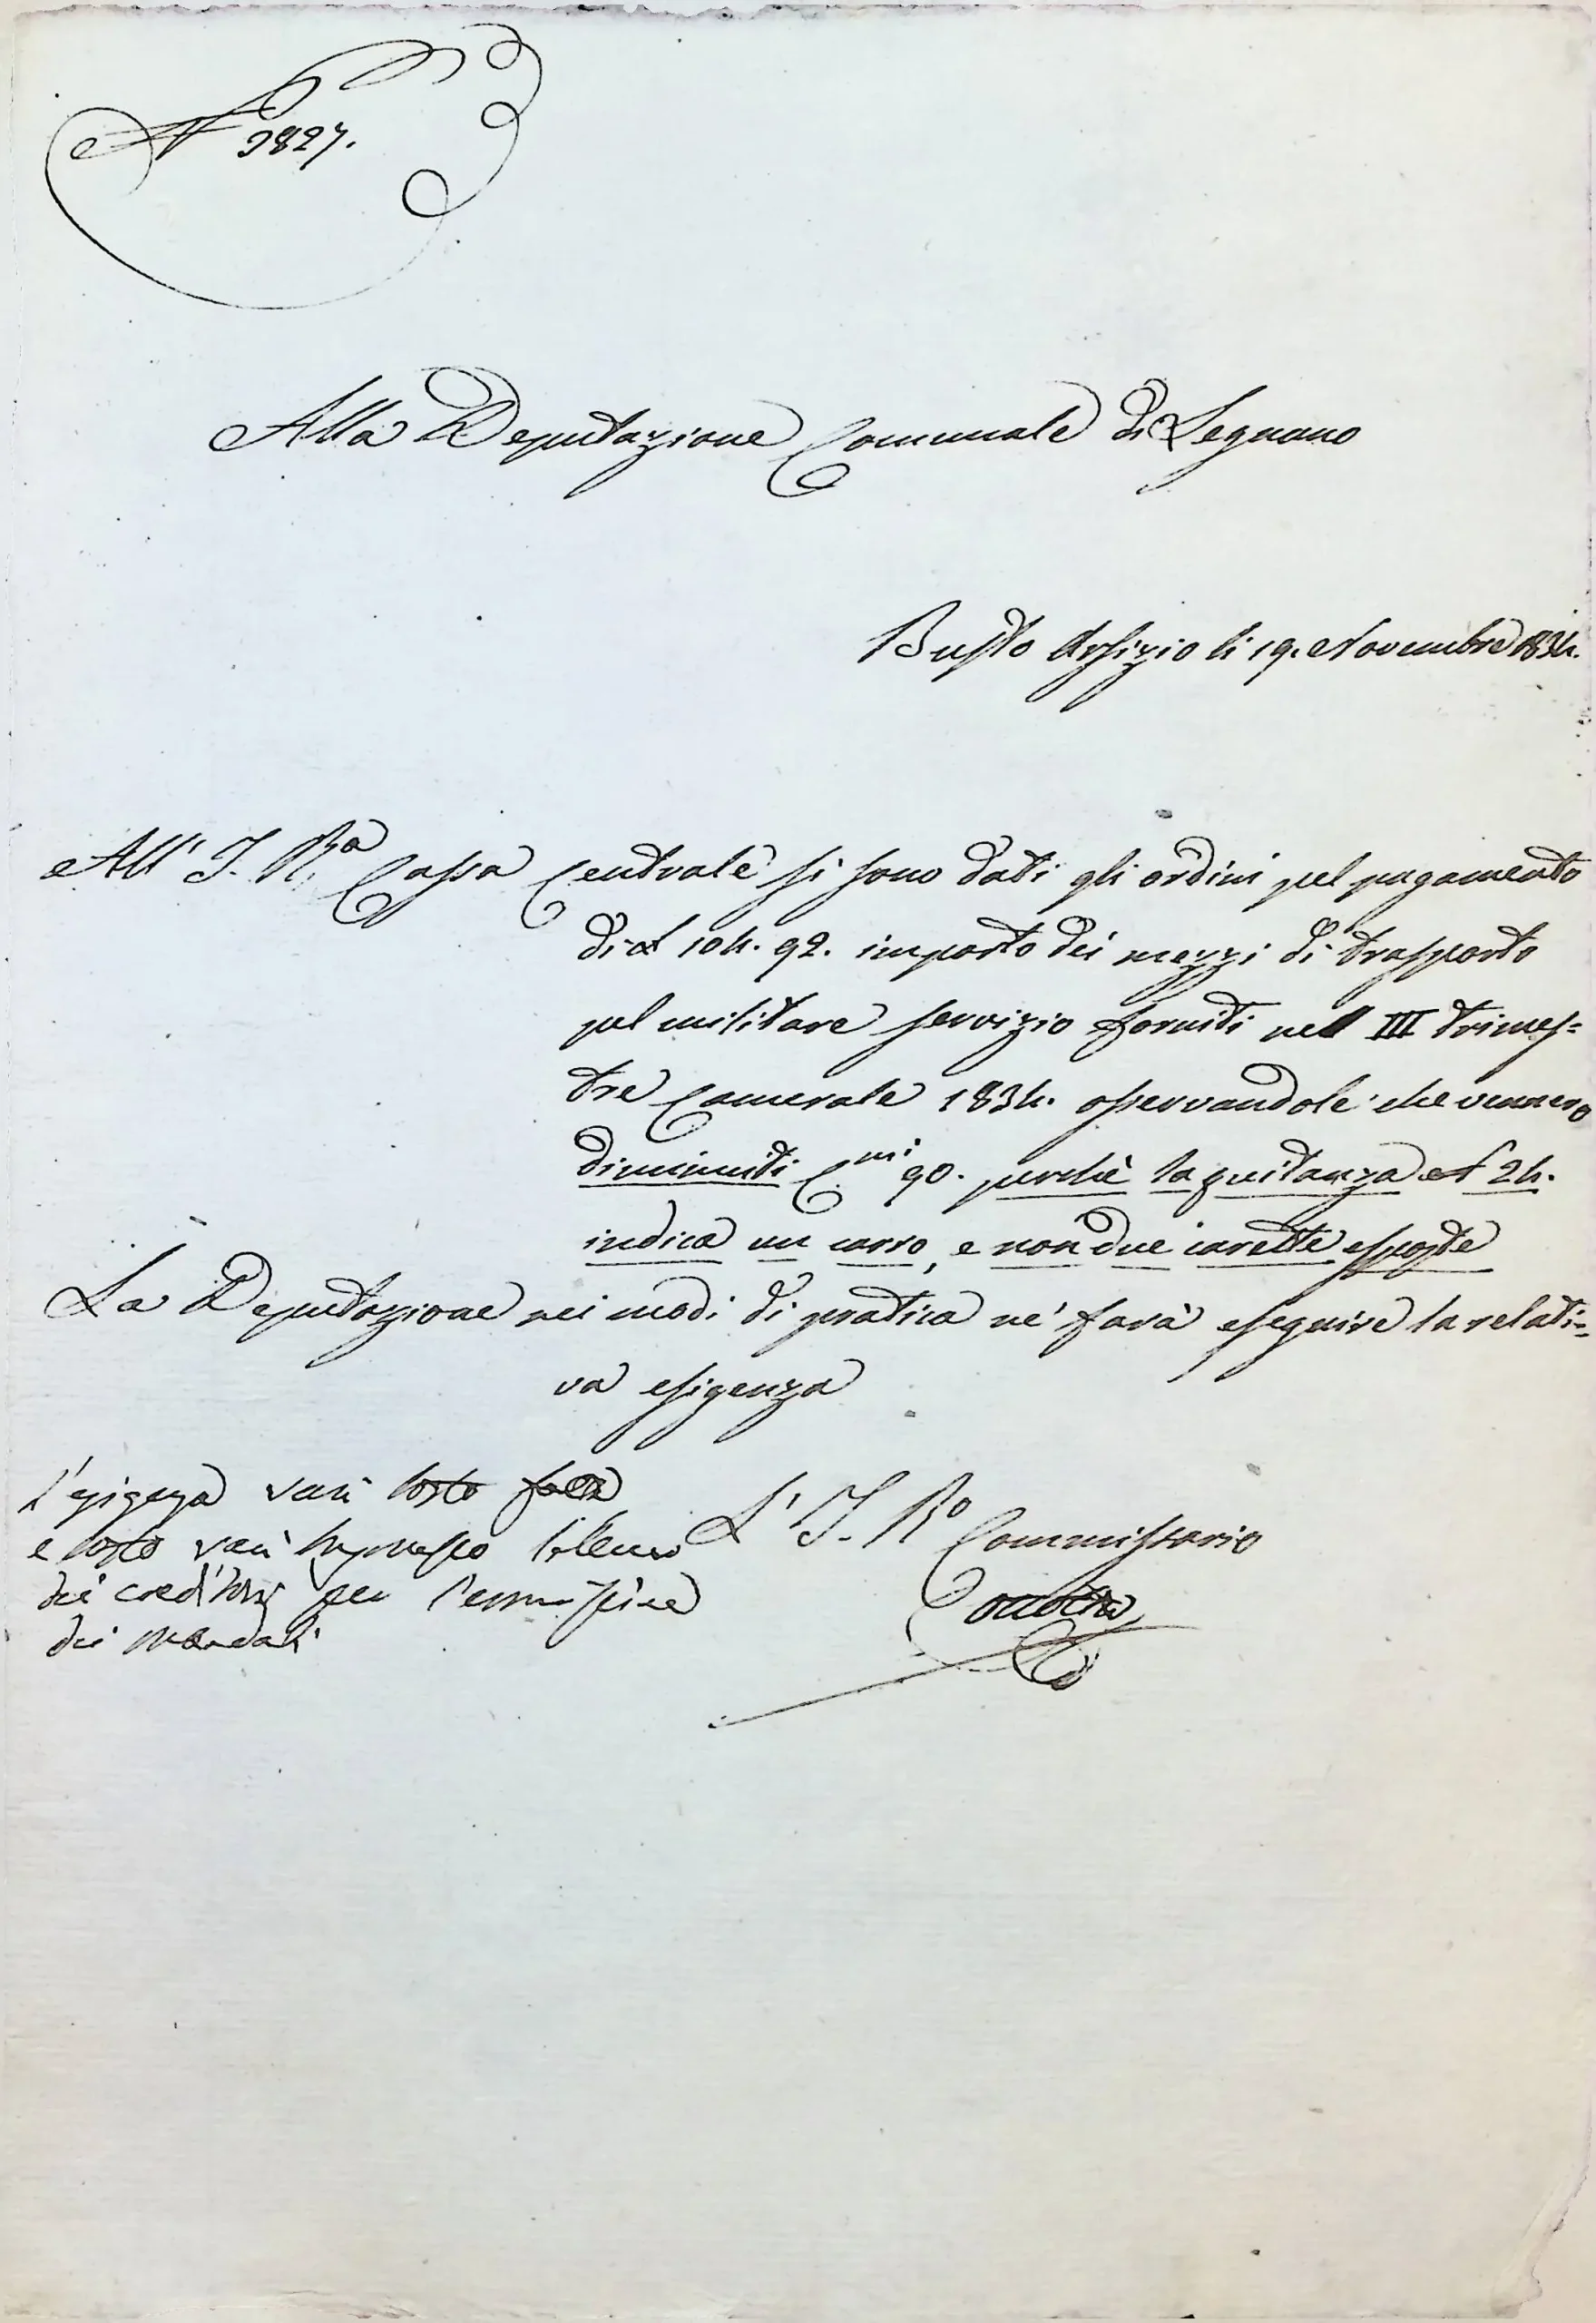 N 3827.
Alla Deputazione Comunale di Legnano
Busto Arsizio li 19. Novembre 1834.
All' I. R.a Cassa Centrale si sono dati gli ordini pel pagamento
di L 104. 92. importo dei mezzi di trasporto
pel militare servizio forniti nel III trimes=
tre Camerale 1834. osservandole che vennero
diminuiti C.mi 90. perchè la quitanza N 24.
indica un carro, e non due carette esposte
La Deputazione nei modi di pratica ne farà eseguire la relati=
va esigenza
L'esigenza verrà tosto fatta
e tosto verrà trasmesso l'elenco
dei creditori per l'emissione
dei mandati
L' I. R.o Commissario